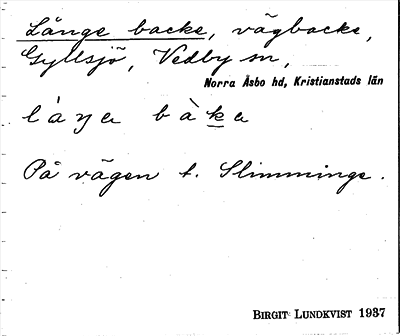 Långe backe, vägbacke,
Gyllsjö, Vedby sn,
Norra Åsbo hd, Kristianstads län
På vägen t. Slimminge.
BIRGIT LUNDKVIST 1937